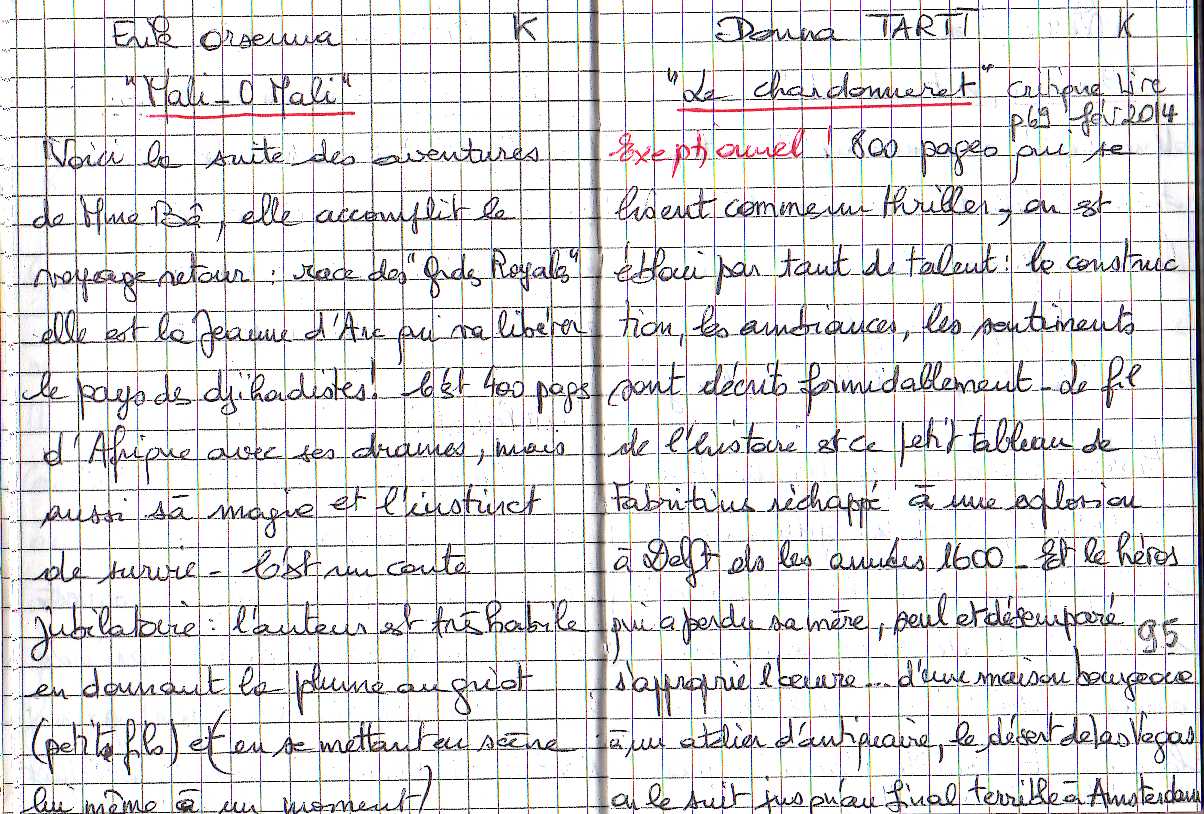 Erik Orsenna K
"Mali-O Mali"
Voici la suite des aventures
de Mme Bâ, elle accomplit le
voyage retour : race des "Gds Royals"
elle est la Jeanne d'Arc qui va libérer
le pays des djihadistes! C'est 400 pages
d'Afrique avec ses drames, mais
aussi sa magie et l'instinct
de survie - C'est un conte
jubilatoire : l'auteur est très habile
en donnant la plume au griot
(petit fils) et (en se mettant en scène
lui même à un moment)
Donna TARTT K
"Le chardonneret" critique Lire
p69 fév 2014
Exeptionnel ! 800 pages qui se
lisent comme un thriller, on est
ébloui par tant de talent : la construc
tion, les ambiances, les sentiments
sont décrits formidablement - le fil
de l'histoire est ce petit tableau de
Fabritius réchappé à une explosion
à Delft ds les années 1600 - Et le héros
qui a perdu sa mère, seul et désemparé
95
s'approprie l'oeuvre... d'une maison bourgeoise
à un atelier d'antiquaire, le désert de Las Vegas
on le suit jusqu'au final terrible à Amsterdam